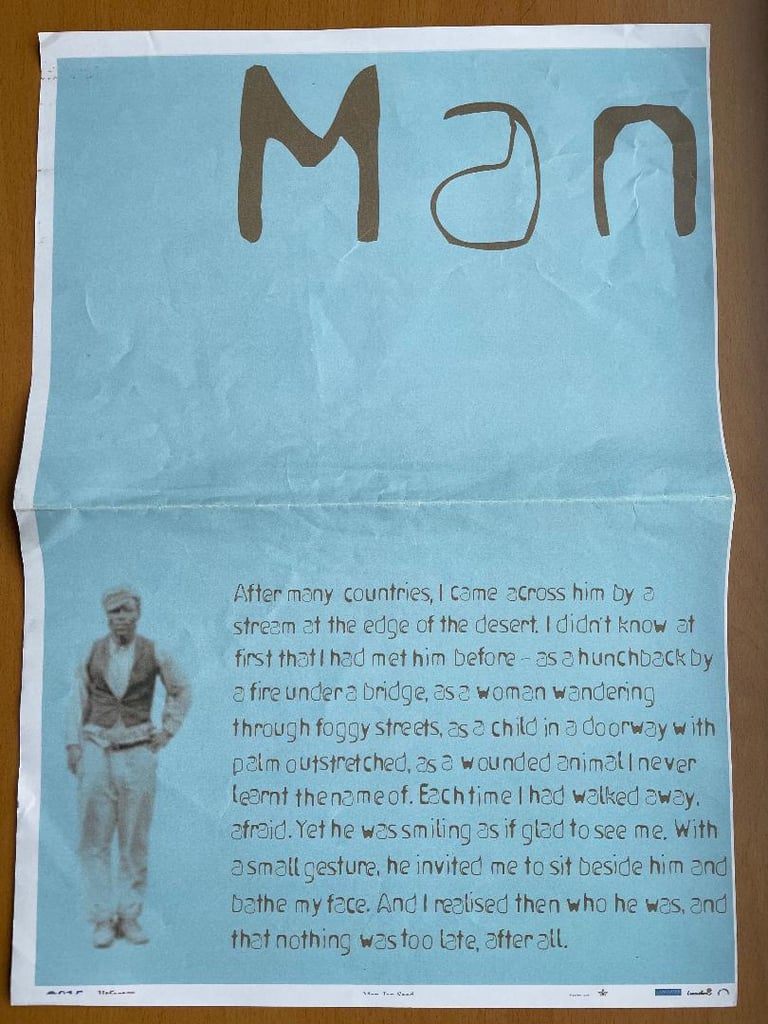 Man
After many countries, I came across him by a
stream at the edge of the desert. I didn't know at
first that I had met him before - as a hunchback by
a fire under a bridge, as a woman wandering
through foggy streets, as a child in a doorway with
palm outstretched, as a wounded animal I never
learnt the name of. Each time I had walked away,
afraid. Yet he was smiling as if glad to see me. With
a small gesture, he invited me to sit beside him and
bathe my face. And I realised then who he was, and
that nothing was too late, after all.